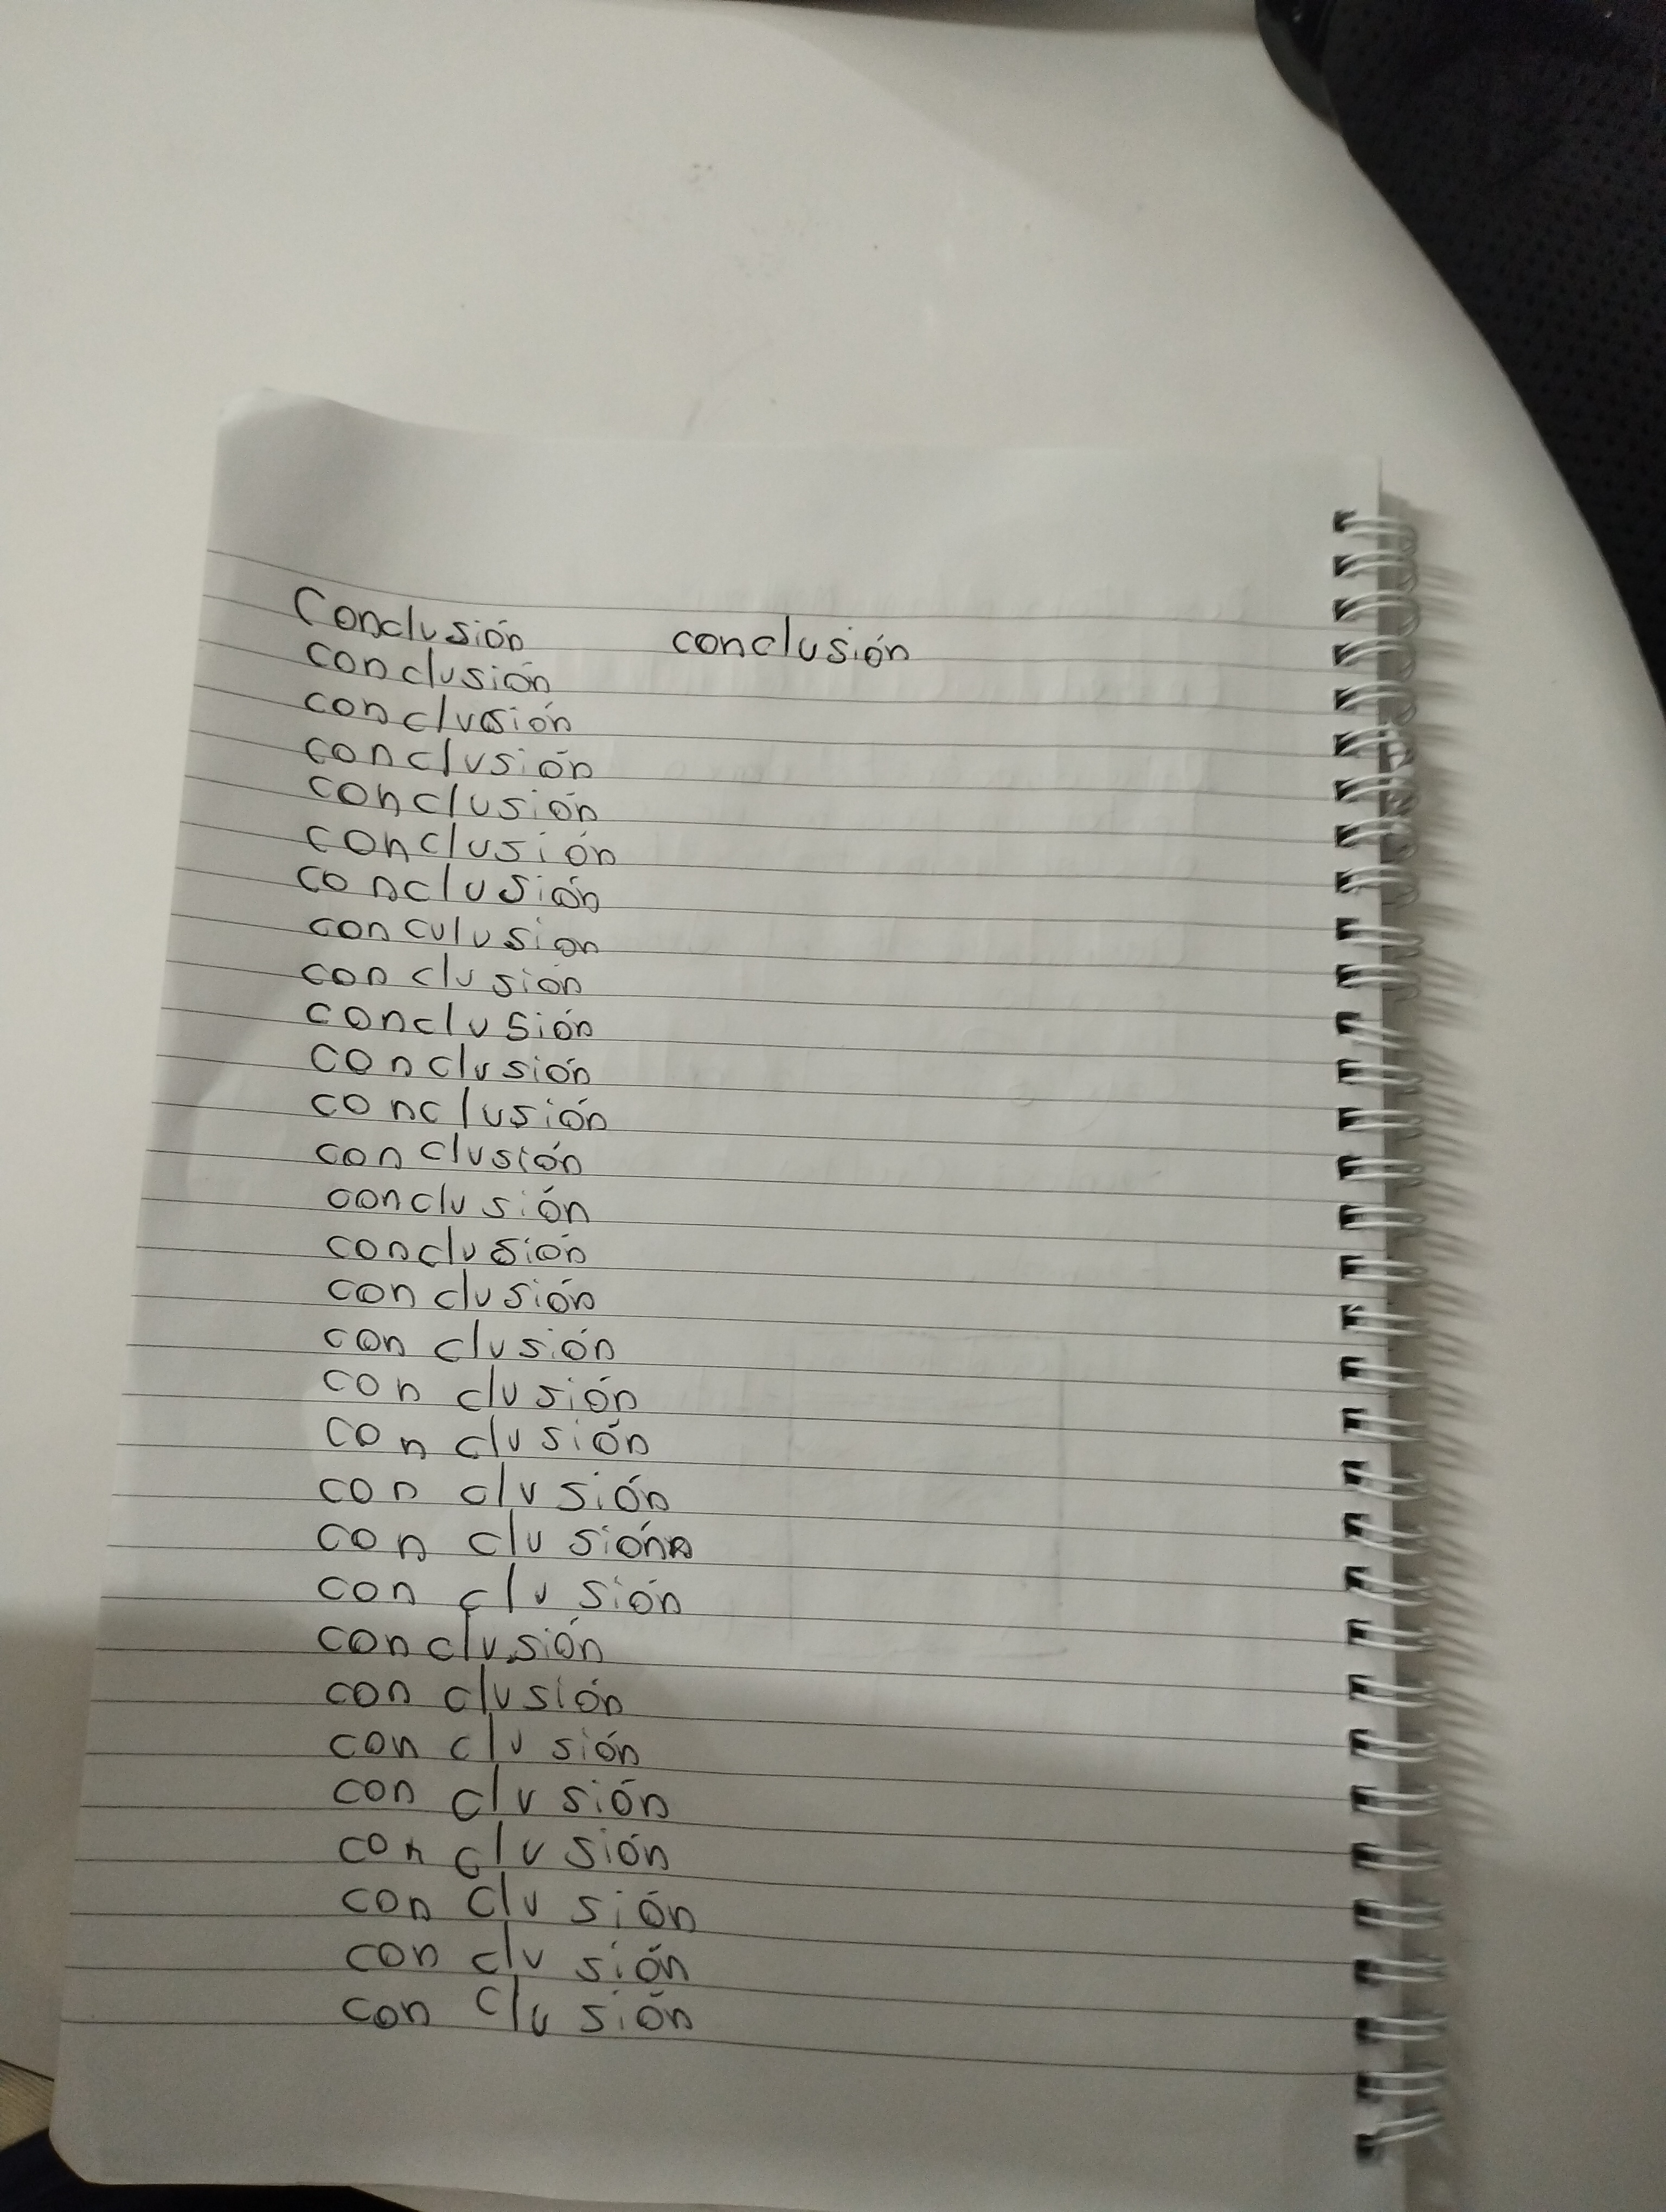 Conclusión conclusión
conclusión
conclusión
conclusión
conclusión
conclusión
conclusión
conculusion
conclusión
conclusión
conclusión
conclusión
conclusión
conclusión
conclusión
conclusión
con clusión
con clusión
con clusión
con clusión
con clu siónn
con clu sión
conclusión
con clusión
con clu sión
con clu sión
con clu sión
con clu sión
con clu sión
con clu sión